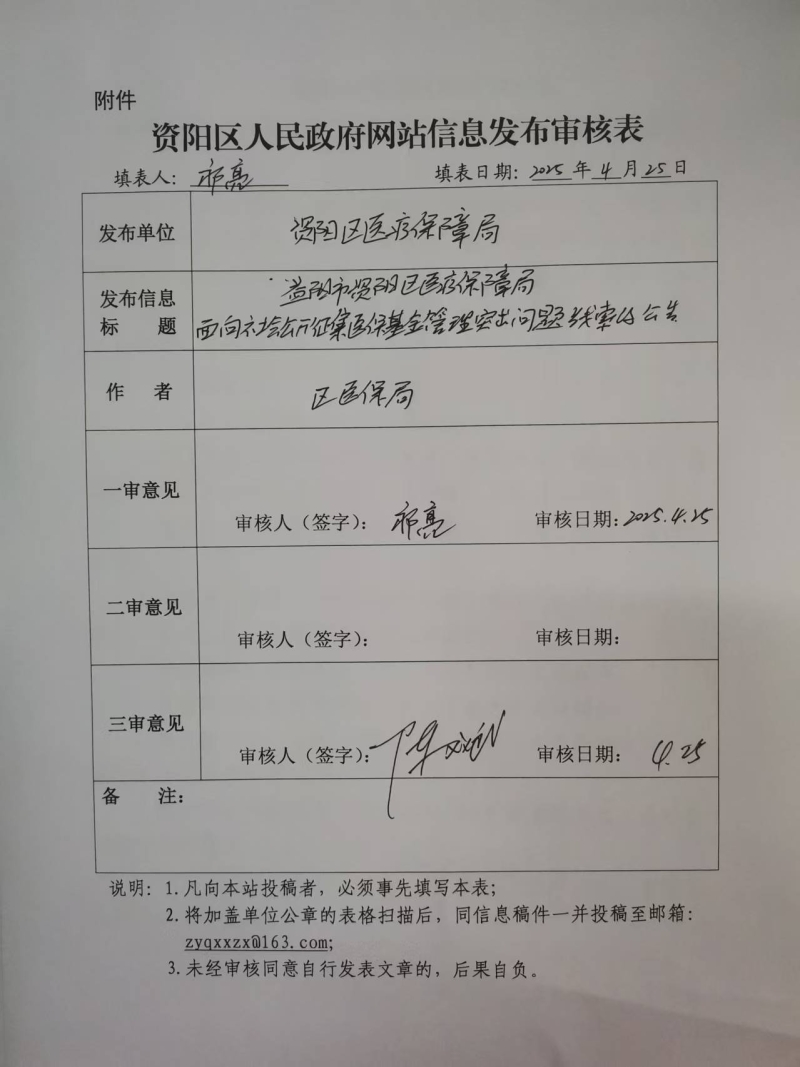 附件
资阳区人民政府网站信息发布审核表
填表人：祁亮 填表日期：2025年4月25日
发布单位 资阳区医疗保障局
发布信息标　题 益阳市资阳区医疗保障局
面向社会公开征集医保基金管理突出问题线索的公告
作　者 区医保局
一审意见
审核人（签字）：祁亮 审核日期：2025.4.25
二审意见
审核人（签字）： 审核日期：
三审意见
审核人（签字）： 审核日期：4.25
备　注：
说明：1.凡向本站投稿者，必须事先填写本表；
2.将加盖单位公章的表格扫描后，同信息稿件一并投稿至邮箱：
zyqxxzx@163.com;
3.未经审核同意自行发表文章的，后果自负。